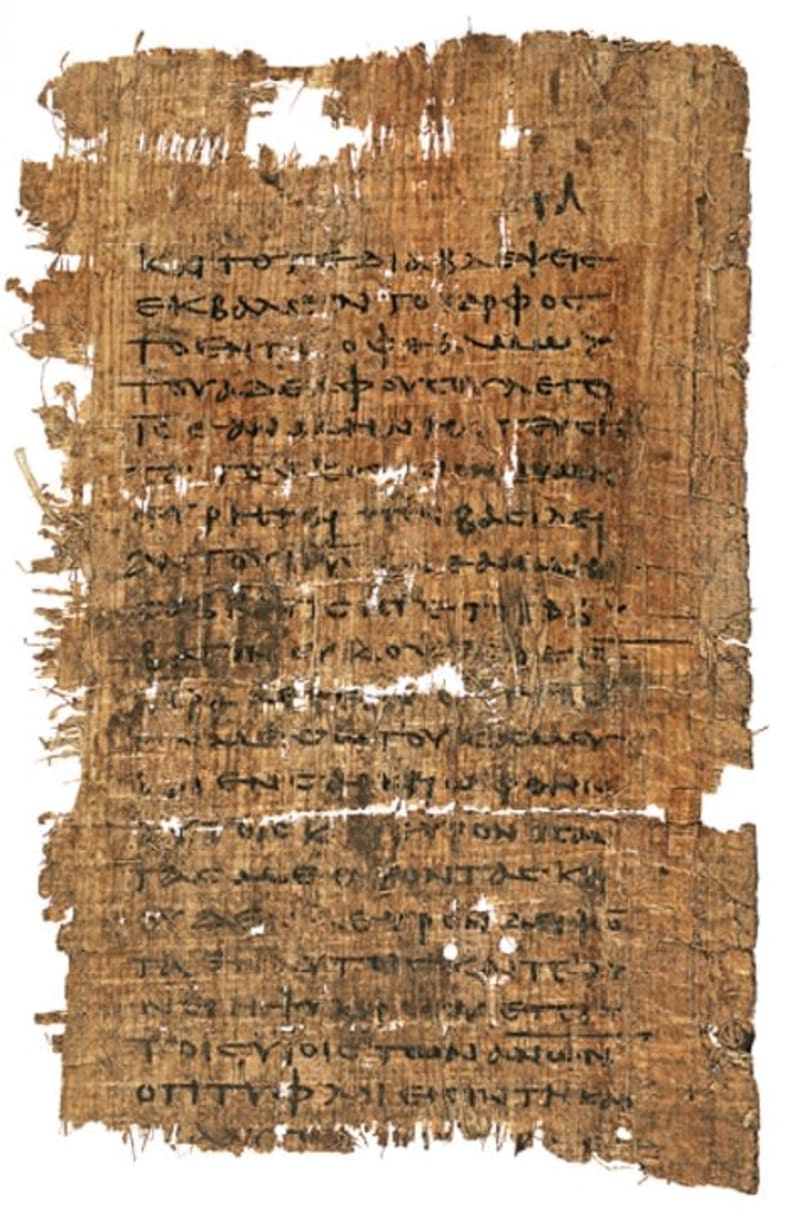 ΙΑ
ΚΑΙ ΤΟΤΕ ΔΙΑΒΛΕΨΕΙϹ
ΕΚΒΑΛΕΙΝ ΤΟ ΚΑΡΦΟϹ
ΤΟ ΕΝ ΤΩ ΟΦΘΑΛΜΩ
ΤΟΥ ΑΔΕΛΦΟΥ ϹΟΥ ΛΕΓΕΙ
ΙϹ ΕΑΝ ΜΗ ΝΗϹΤΕΥϹΗ
ΤΑΙ ΤΟΝ ΚΟϹΜΟΝ ΟΥ ΜΗ
ΕΥΡΗΤΑΙ ΤΗΝ ΒΑϹΙΛΕΙ
ΑΝ ΤΟΥ ΘΥ ΚΑΙ ΕΑΝ ΜΗ
ϹΑΒΒΑΤΙϹΗΤΕ ΤΟ ϹΑΒ
ΒΑΤΟΝ ΟΥΚ ΟΨΕϹΘΕ ΤΟ
ΠΡΑ ΛΕΓΕΙ ΙϹ ΕϹΤΗΝ
ΕΝ ΜΕϹΩ ΤΟΥ ΚΟϹΜΟΥ
ΚΑΙ ΕΝ ϹΑΡΚΕΙ ΩΦΘΗΝ
ΑΥΤΟΙϹ ΚΑΙ ΕΥΡΟΝ ΠΑΝ
ΤΑϹ ΜΕΘΥΟΝΤΑϹ ΚΑΙ
ΟΥΔΕΝΑ ΕΥΡΟΝ ΔΕΙΨΩ
ΤΑ ΕΝ ΑΥΤΟΙϹ ΚΑΙ ΠΟ
ΝΕΙ Η ΨΥΧΗ ΜΟΥ ΕΠΙ
ΤΟΙϹ ΥΙΟΙϹ ΤΩΝ ΑΝΩΝ
ΟΤΙ ΤΥΦΛΟΙ ΕΙϹΙΝ ΤΗ ΚΑΡ